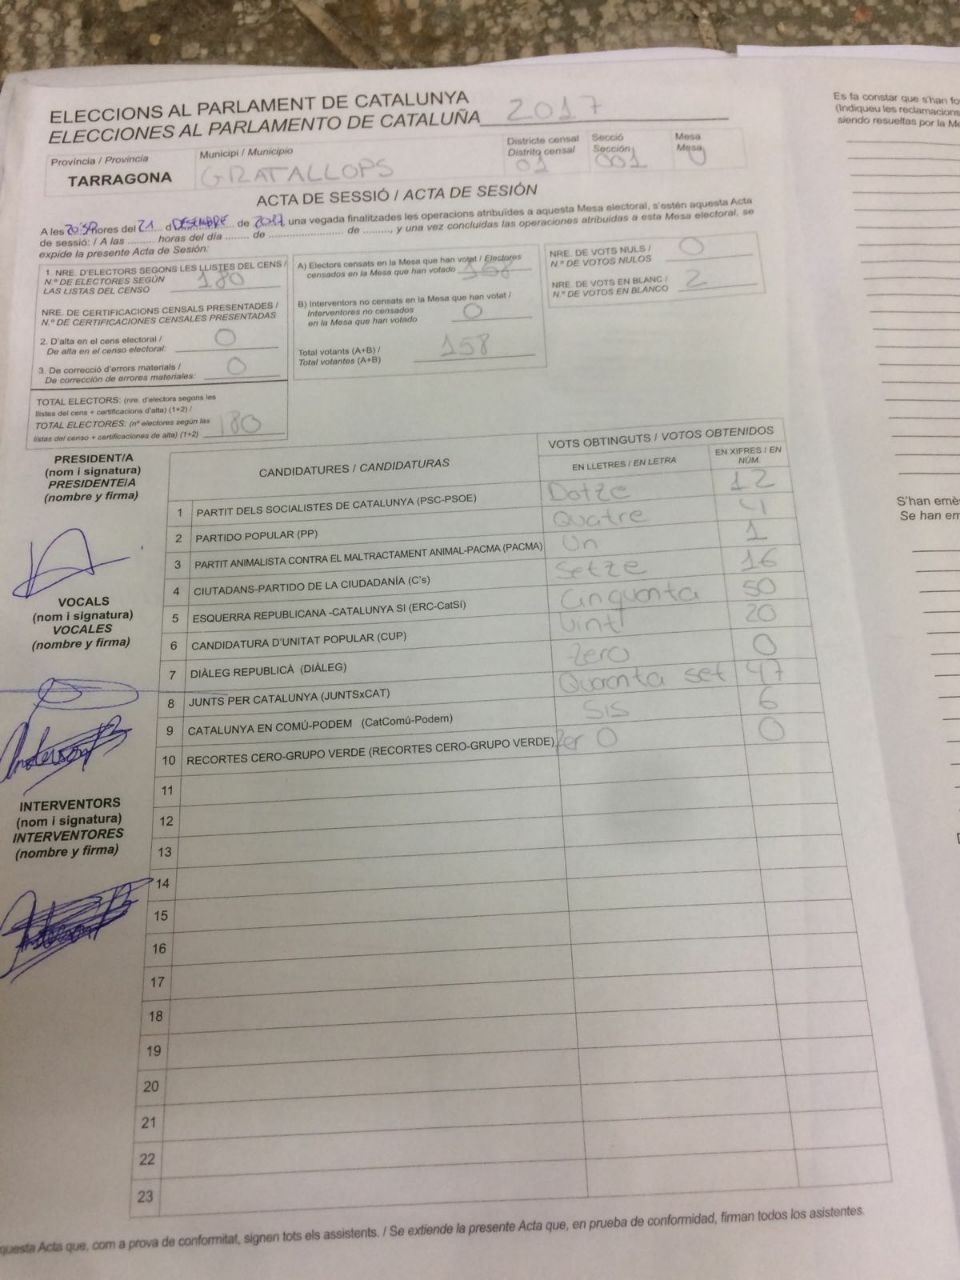 ELECCIONS AL PARLAMENT DE CATALUNYA
ELECCIONES AL PARLAMENTO DE CATALUÑA 2017
Província / Provincia
TARRAGONA
Municipi / Municipio
GRATALLOPS
Districte censal
Distrito censal
01
Secció
Sección
001
Mesa
Mesa
U
ACTA DE SESSIÓ / ACTA DE SESIÓN
A les hores del 21 d DESEMBRE de 2017 una vegada finalitzades les operacions atribuïdes a aquesta Mesa electoral, s'estén aquesta Acta
de sessió: / A las .......... horas del día ........ de .......................... de ........, y una vez concluidas las operaciones atribuidas a esta Mesa electoral, se
expide la presente Acta de Sesión:
1. NRE. D'ELECTORS SEGONS LES LLISTES DEL CENS /
N.º DE ELECTORES SEGÚN
LAS LISTAS DEL CENSO 180
NRE. DE CERTIFICACIONS CENSALS PRESENTADES /
N.º DE CERTIFICACIONES CENSALES PRESENTADAS
2. D'alta en el cens electoral /
De alta en el censo electoral: 0
3. De correcció d'errors materials /
De corrección de errores materiales: 0
TOTAL ELECTORS: (nre. d'electors segons les
llistes del cens + certificacions d'alta) (1+2) /
TOTAL ELECTORES: (nº electores según las
listas del censo + certificaciones de alta) (1+2) 180
A) Electors censats en la Mesa que han votat / Electores
censados en la Mesa que han votado
B) Interventors no censats en la Mesa que han votat /
Interventores no censados
en la Mesa que han votado 0
Total votants (A+B) /
Total votantes (A+B) 158
NRE. DE VOTS NULS /
N.º DE VOTOS NULOS 0
NRE. DE VOTS EN BLANC /
N.º DE VOTOS EN BLANCO 2
PRESIDENT/A
(nom i signatura)
PRESIDENTE/A
(nombre y firma)
VOCALS
(nom i signatura)
VOCALES
(nombre y firma)
INTERVENTORS
(nom i signatura)
INTERVENTORES
(nombre y firma)
CANDIDATURES / CANDIDATURAS
VOTS OBTINGUTS / VOTOS OBTENIDOS
EN LLETRES / EN LETRA
EN XIFRES / EN
NÚM.
1 PARTIT DELS SOCIALISTES DE CATALUNYA (PSC-PSOE) Dotze 12
2 PARTIDO POPULAR (PP) Quatre 4
3 PARTIT ANIMALISTA CONTRA EL MALTRACTAMENT ANIMAL-PACMA (PACMA) Un 1
4 CIUTADANS-PARTIDO DE LA CIUDADANÍA (C's) Setze 16
5 ESQUERRA REPUBLICANA -CATALUNYA SI (ERC-CatSí) Cinquanta 50
6 CANDIDATURA D'UNITAT POPULAR (CUP) Vint 20
7 DIÀLEG REPUBLICÀ (DIÀLEG) Zero 0
8 JUNTS PER CATALUNYA (JUNTSxCAT) Quaranta set 47
9 CATALUNYA EN COMÚ-PODEM (CatComú-Podem) Sis 6
10 RECORTES CERO-GRUPO VERDE (RECORTES CERO-GRUPO VERDE) Zero 0
11
12
13
14
15
16
17
18
19
20
21
22
23
questa Acta que, com a prova de conformitat, signen tots els assistents. / Se extiende la presente Acta que, en prueba de conformidad, firman todos los asistentes.
Es fa constar que s'han fo
(Indiqueu les reclamacions
siendo resueltas por la Me
S'han emè
Se han em